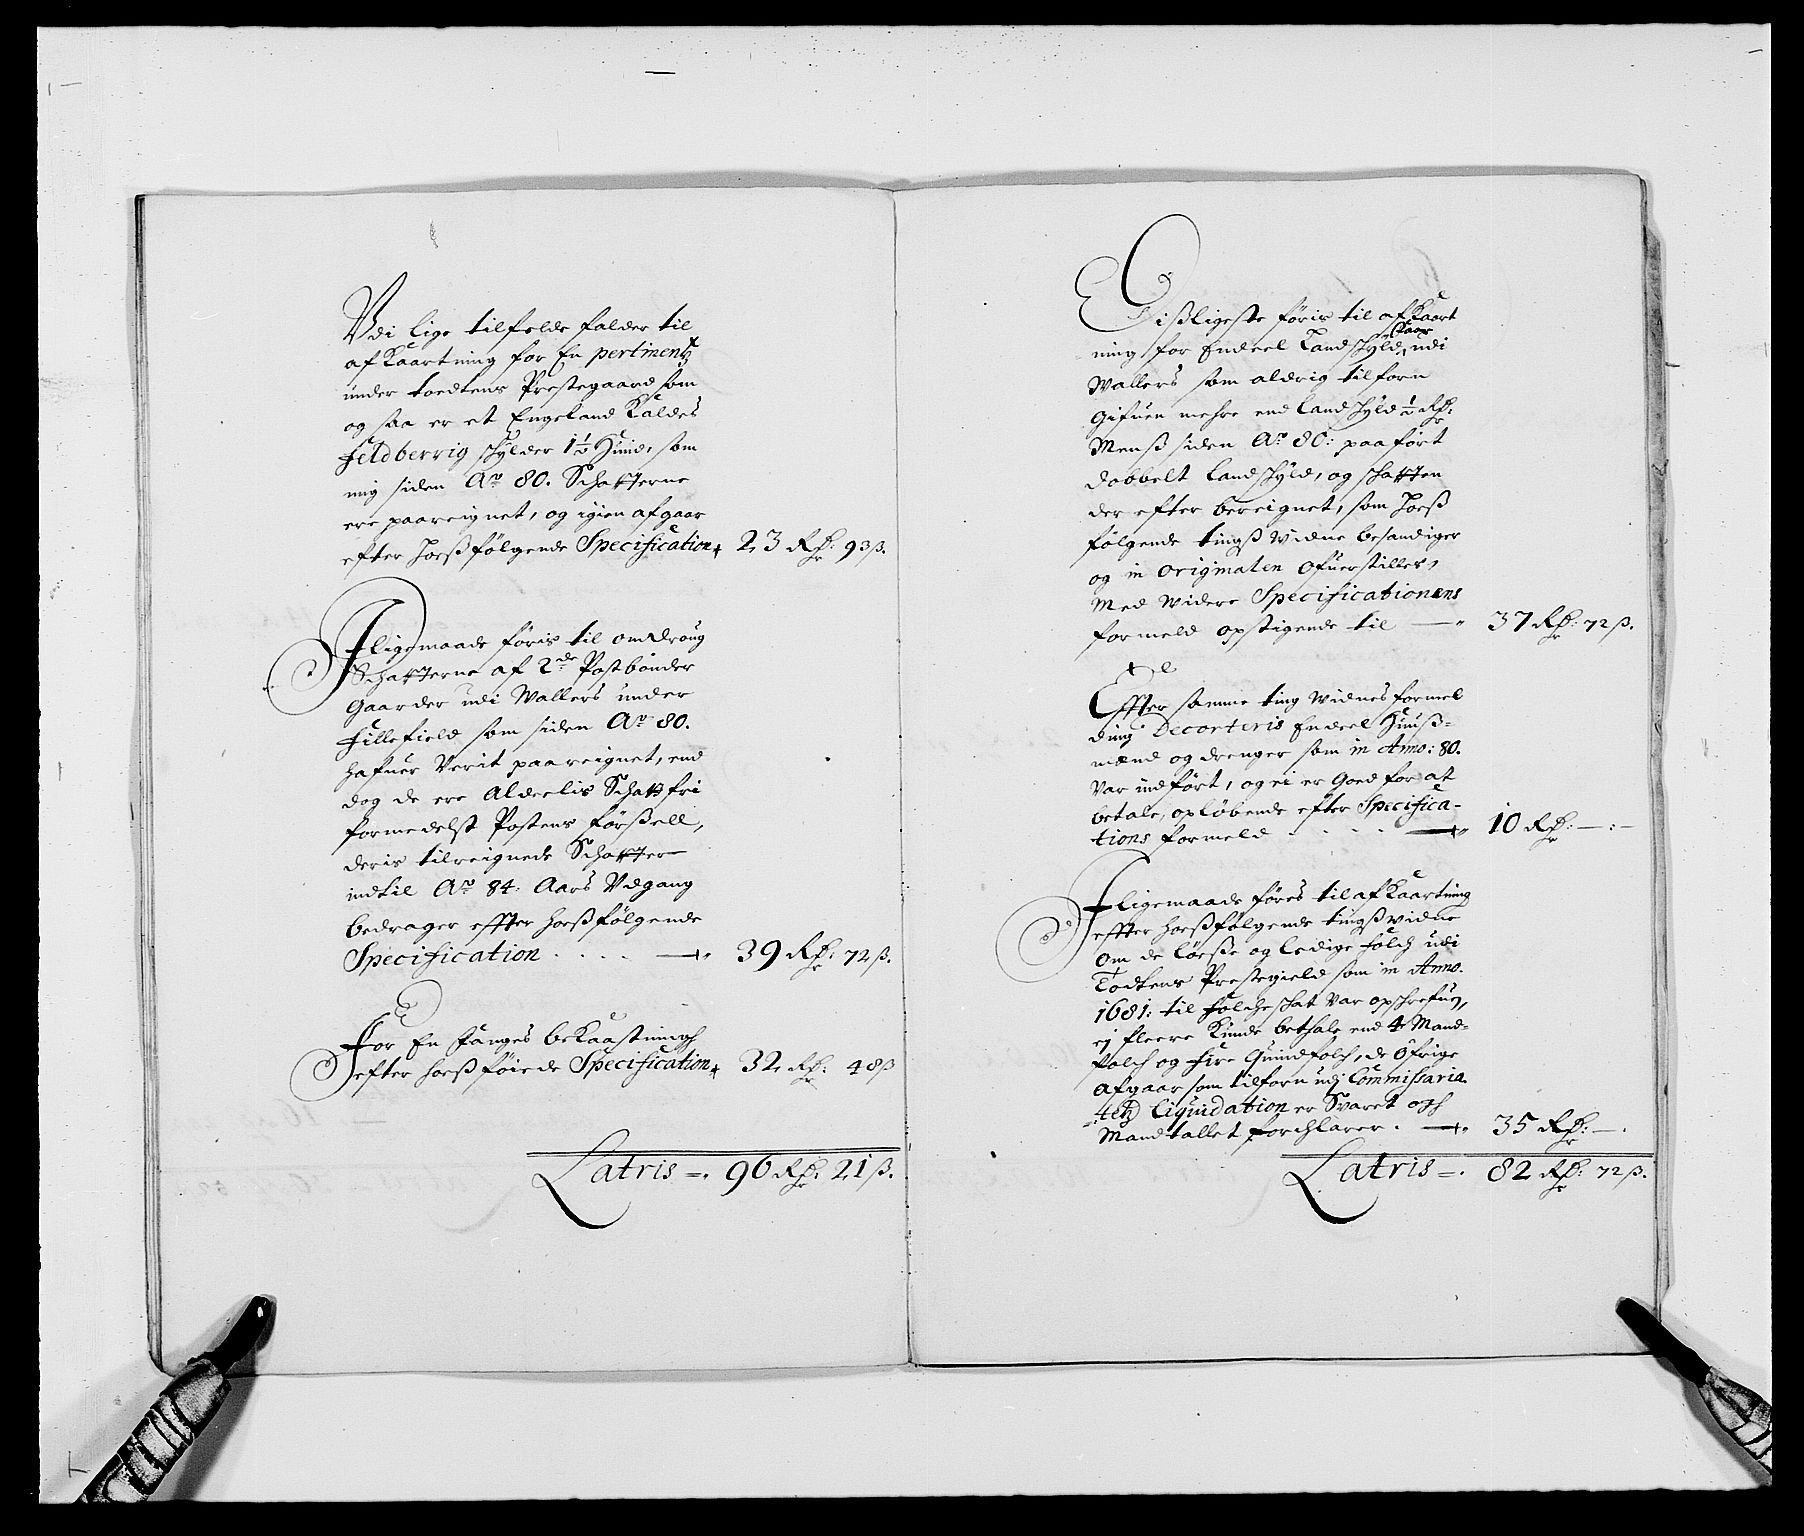 Udi lige tilfelde falder til
afKaartning for En pertinentz
under toedtens Prestegaard som
og saa er et Engeland Kaldes
Feldberrig schylder 1½ Huud, som
mig siden Ao 80. Schatterne
ere paareignet, og igien afgaar
efter hoesfølgende Specification 23 Rdr: 93 ß.
I ligemaade føris til omdroug
Schatterne af 2de Postbønder
Gaarder udi Wallers under
Fillefield som siden Ao 80.
hafuer Verit paareignet, end
dog de ere Aldeelis Schattfri
formedelst Postens førßell,
deris tilreignede Schatter
indtil Ao 84. Aars Udgang
bedrager effter hoesfølgende
Specification 39 Rdr: 72 ß.
For En Fanges beKaastningh
efter hoesføiede Specification 32 Rdr: 48 ß
Latris 96 Rdr: 21 ß.
Dißligeste føris til afKaart
ning for Endeel Landschyld, udi
Wallers som aldrig tilforn
Gifuen mehre end landschyld ½ Rdr:
Menß siden Ao 80: paaført
dobbelt landschyld, og schatten
der efter bereignet, som hoeß
følgende tingß Vidne
og in originalen ofuerstilles,
Med Videre Specificationens
formeld opstigende til 37 Rdr: 72 ß.
Effter samme ting Vidnes formel
ding Decorteris Endeel Huuß-
mænd og drenger som in Anno: 80.
Var indført, og ei er Goed for at
betale, opløbende efter Specifica-
tions formeld 10 Rdr:
I ligemaade føres til afKaartning
effter hoesfølgende tingß vidne
om de løeße og ledige folch udi
Todtens Prestegield som in Anno.
1681: til folcheschat Var opschrefuen,
ej fleere Kunde bethale end 4 Mand-
folch og Fire Quindfolch, de Øfrige
Afgaar som tilforn udj Commissaria-
tetz Liquidation er Svaret och
Mandtallet forchlarer. 35 Rdr:
Latris 82 Rdr: 72 ß.